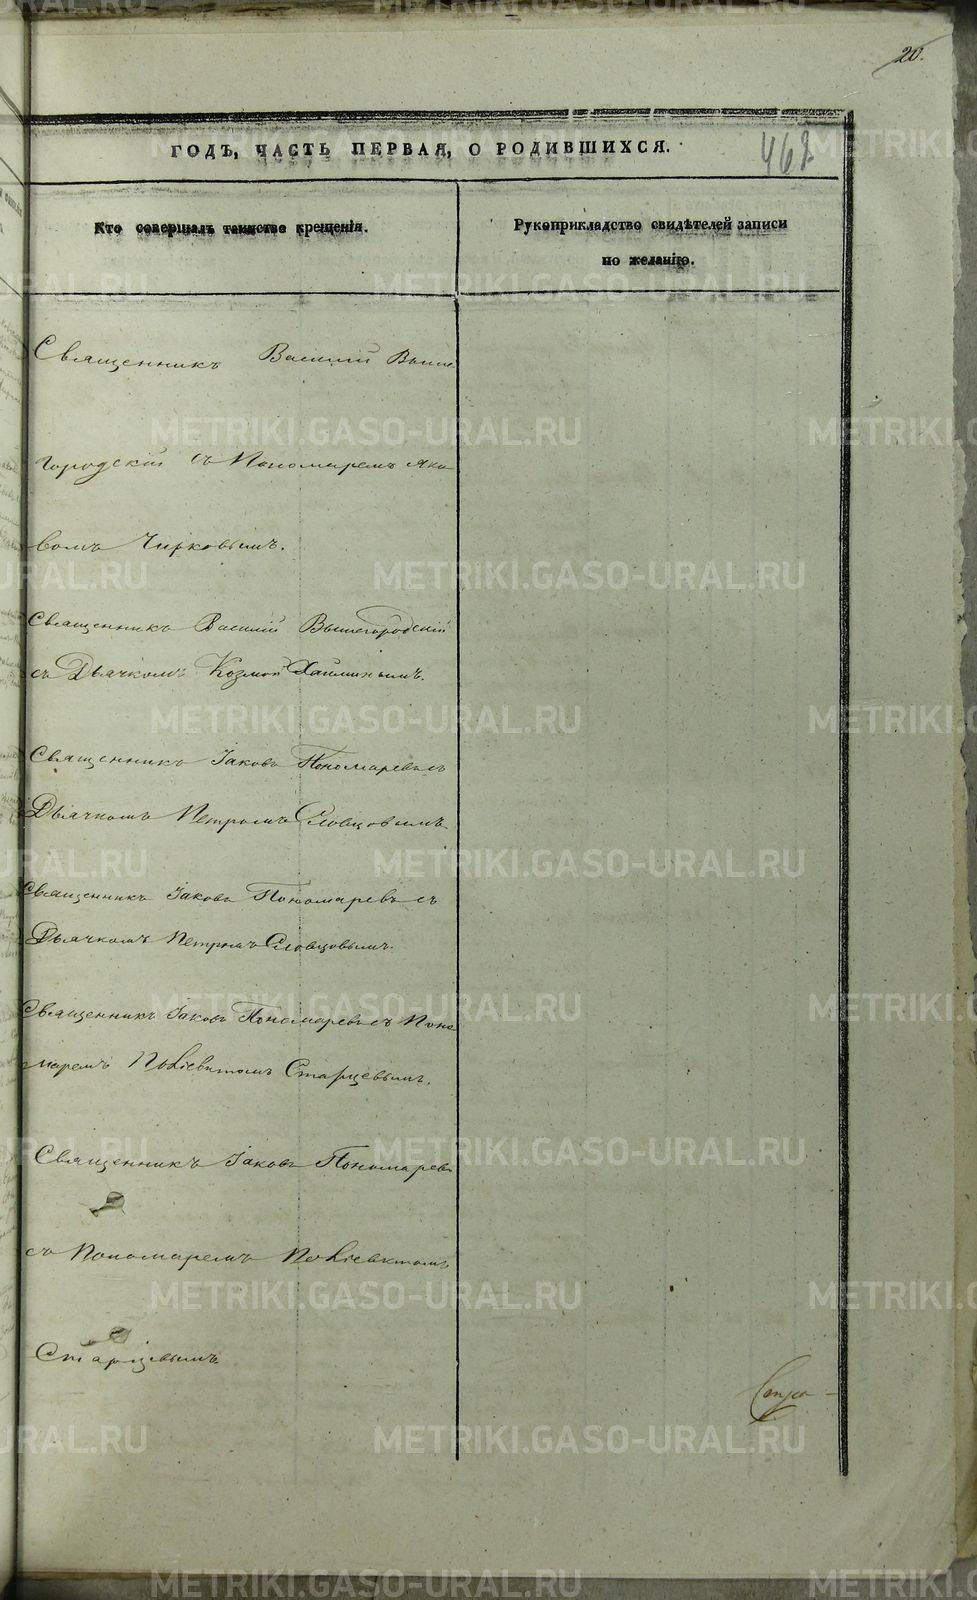 20.
468
ГОДЪ, ЧАСТЬ ПЕРВАЯ, О РОДИВШИХСЯ.
Кто совершалъ таинство крещенія.
Рукоприкладство свидѣтелей записи
по желанію.
Священникъ Василій Выше
городскій съ Пономаремъ Яко
вомъ Чирковымъ.
Священникъ Василій Вышегородскій
съ Дьячкомъ Козмой
Священникъ Іаковъ Пономаревъ съ
Дьячкомъ Петромъ Словцовымъ
Священникъ Іаковъ Пономаревъ съ
Дьячкомъ Петромъ Словцовымъ.
Священникъ Іаковъ Пономаревъ съ Поно
маремъ Поліевктомъ Старцевымъ.
Священникъ Іаковъ Пономаревъ
съ Пономаремъ Поліевктомъ
Старцевымъ
METRIKI.GASO-URAL.RU